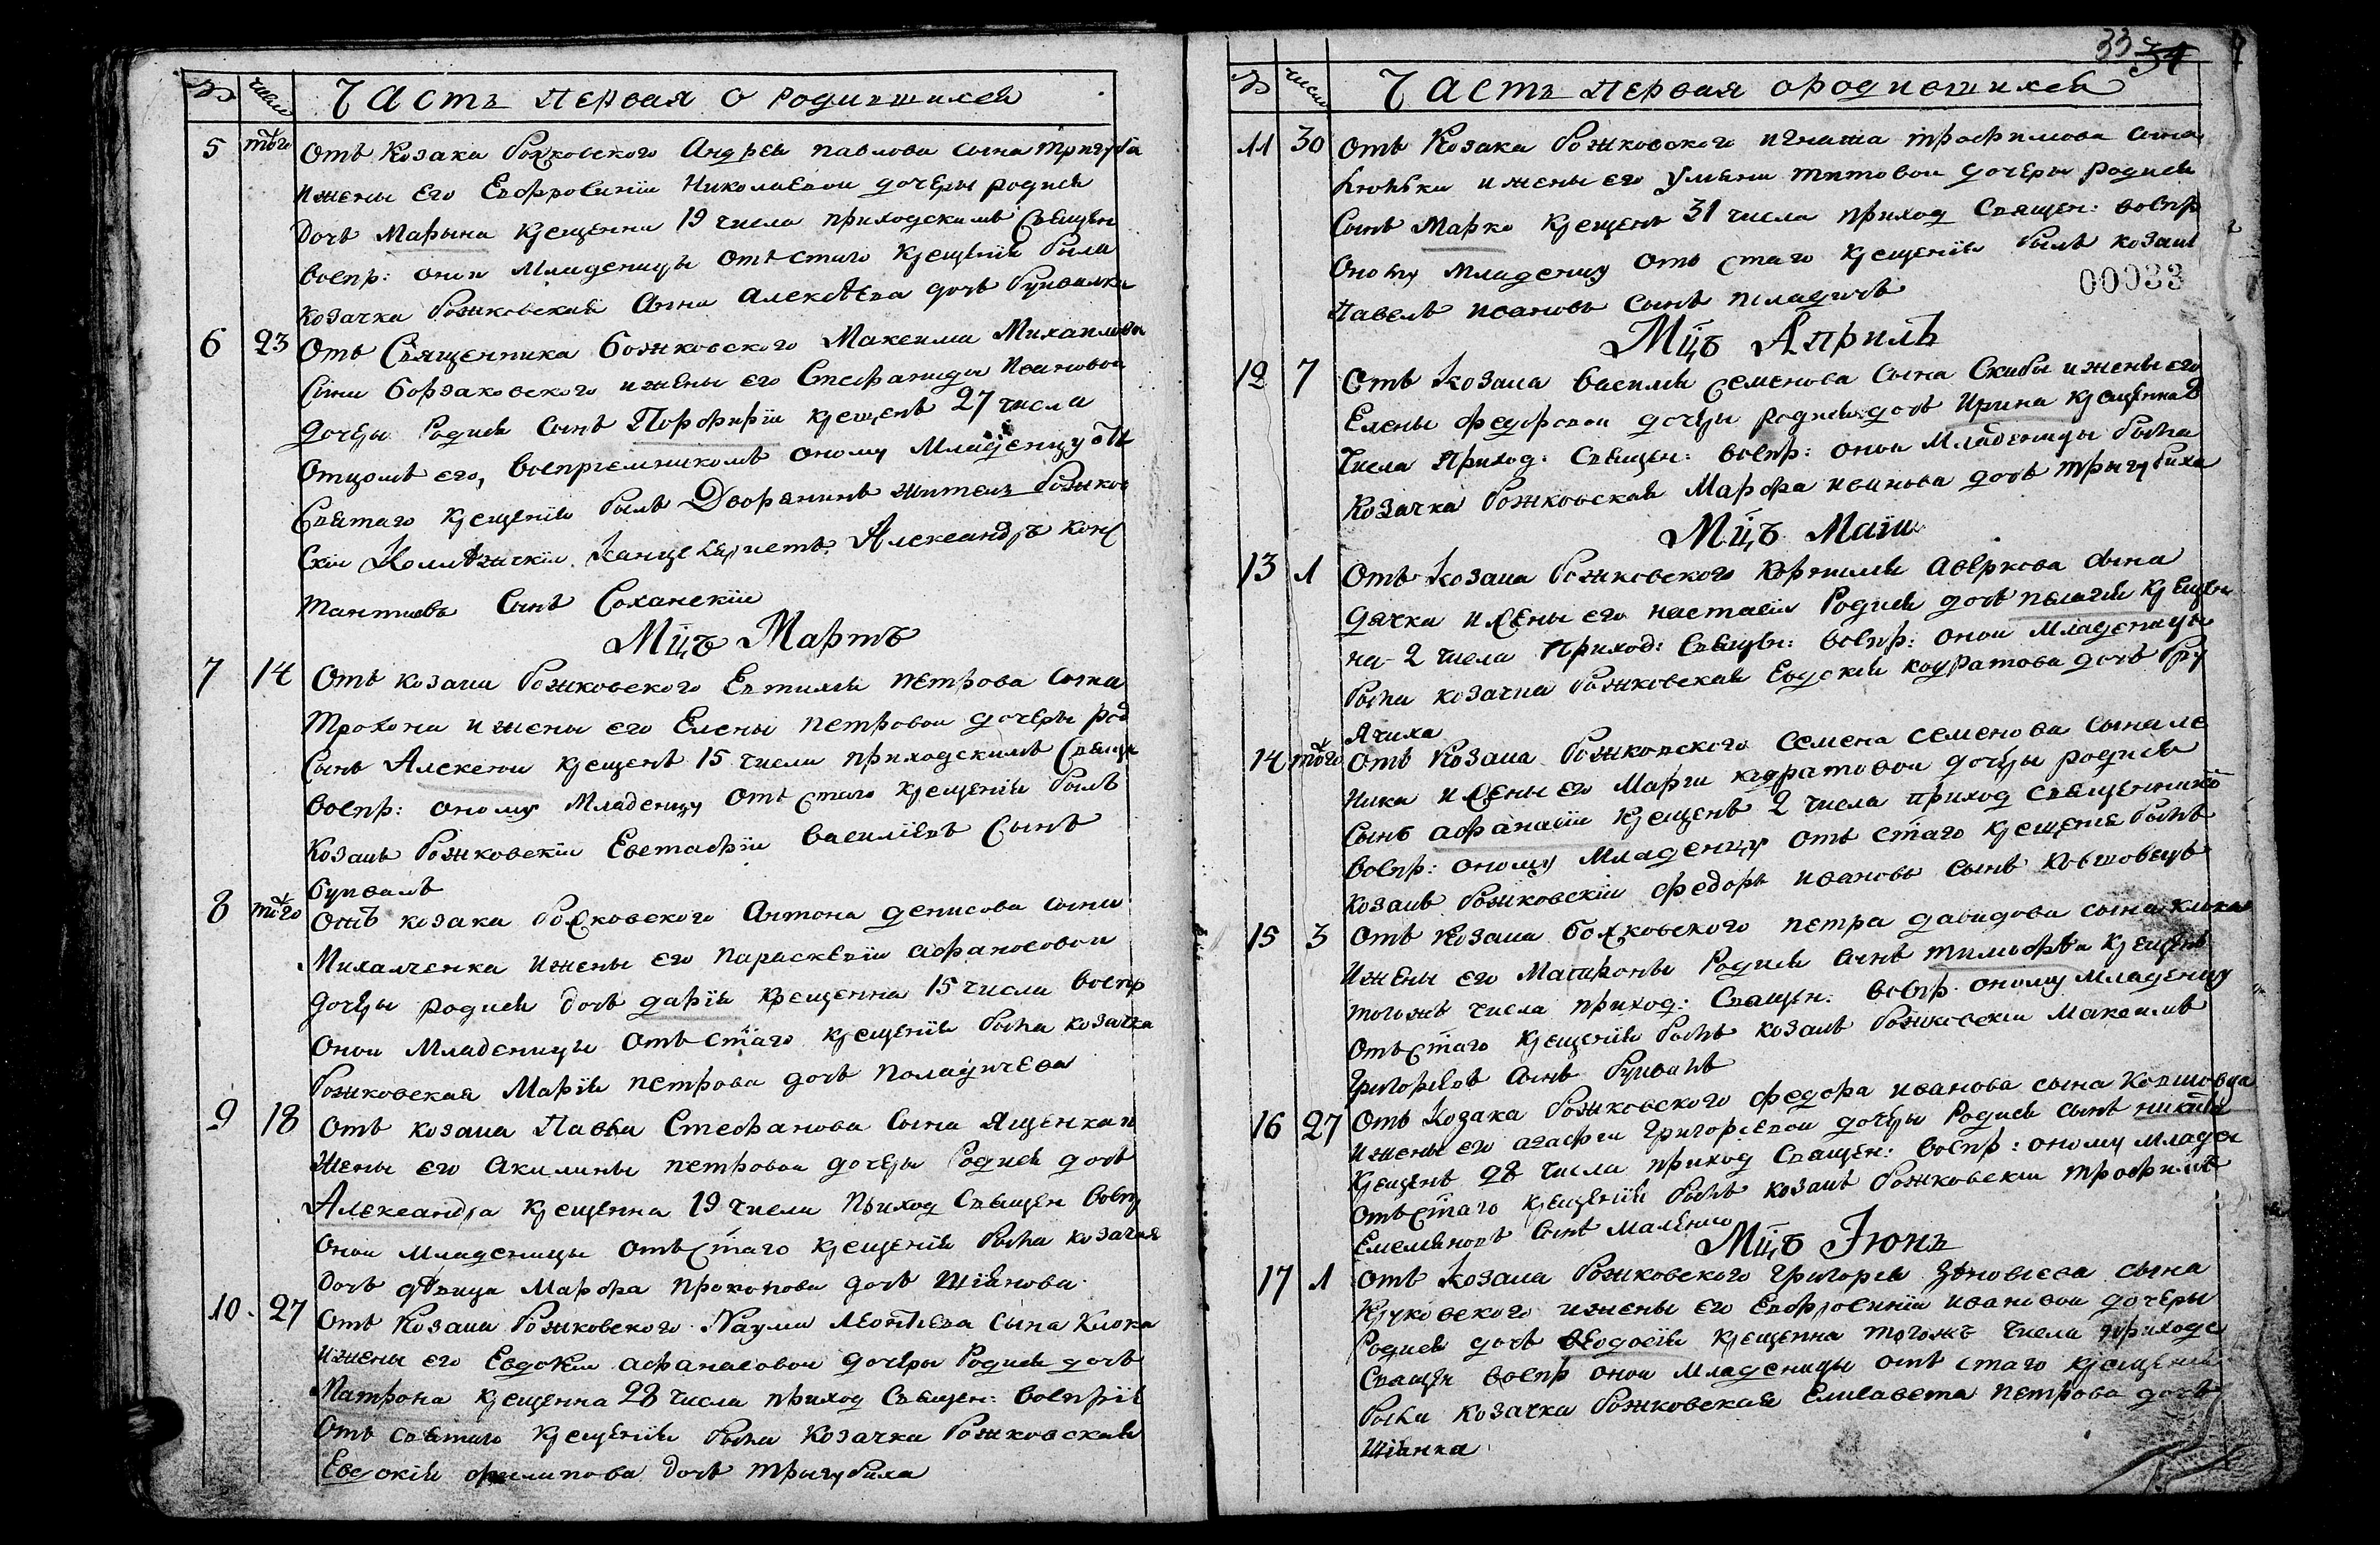 № числа Часть первая о родившихся
5 тогож Отъ козака Божковского Андрея павлова сына тригуба
и жены его Евфросинїи Николаевои дочеры родися
Дочь Марына крещенна 19 числа приходскимъ Священ
воспр: онои Младеницы отъ стаго крещенїя была
козачка Божковская Анна алексѣева дочь Бунвалка
6 23 Отъ Священника Божковского Максима Михаилова
Сына Борзаковского и жены его Стефаниды Ивановои
дочеры Родися Сынъ Порфирїи крещенъ 27 числа
Отцомъ его, воспрїемникомъ оному Младенцу отъ
Святаго крещенїя былъ Дворянинъ житель Божков
скїи Коллѣжскїи Канцеляристъ Александръ Конс
тантиновъ Сынъ Соханскїи
Мцъ Мартъ
7 14 Отъ козака Божковского Евтимия петрова сына
Трохона и жены его Елены петровои дочеры род
Сынъ Алексѣи крещенъ 15 числа приходскимъ Свящн
воспр: оному Младенцу отъ стаго крещенїя былъ
Козакъ Божковскїи Евстафїи василїевъ Сынъ
Бунвалъ
8 тогож Отъ козака Божковского Антона денисова сына
Михалченка и жены его параскевїи афанасовои
дочеры родися дочь дарїя крещенна 15 числа воспр
онои Младеницы отъ стаго крещенїя была козачка
Божковская Марїя петрова дочь поладичева
9 18 Отъ козака Павла Стефанова сына Ященка и
жены его Акилины петровои дочеры Родися дочь
Александра крещенна 19 числа приход Священ воспр
онои младеницы отъ стаго крещенїя была козачая
дочь дѣвица Марфа прокопова дочь шїанова
10. 27 Отъ Козака Божковского Наума Леонтїева сына Клока
и жены его Евдокїи афанасовои дочеры Родися дочь
Матрона крещенна 28 числа приход Священ: воспрїе
отъ святаго крещенїя была козачка Божковская
Евдокїя филипова дочь тригубиха
33 34
№ числа Часть первая о родившихся
11 30 Отъ Козака Божковского игната трофимова сына
и жены его Уляни титовои дочеры родися
Сынъ Марко крещенъ 31 числа приход Священ: воспр
оному младенцу отъ стаго крещенїя былъ козакъ
Павелъ ивановъ сынъ поладичъ
00033
Мцъ Априлъ
12 7 Отъ Козака василия Семенова сына Скибы и жены его
Елены федоровои дочеры родися дочь Ирина крещенна 8
числа приход: Священ: воспр: онои Младеницы была
козачка Божковская Марфа иванова дочь тригубиха
Мцъ Маїи
13 1 Отъ Козака Божковского Корнилия аверкова сына
дячка и жены его настасїи Родися дочь пелагия крещен
на 2 числа приход: Священ: воспр: онои младеницы
была козачка Божковская Евдокїя кодратова дочь бру
ячиха
14 тогож Отъ Козака Божковского Семена семенова сына ле
ника и жены его Марїи кодратовои дочеры родися
сынъ афанасїи крещенъ 2 числа приход священником
воспр: оному младенцу отъ стаго крещенїя былъ
козакъ Божковскїи федоръ ивановъ сынъ ковшовецъ
15 3 Отъ Козака Божковского петра давидова сына клока
и жены его Матроны Родися сынъ тимофѣи крещенъ
тогожъ числа приход: Священ: воспр. оному младенцу
отъ стаго крещенїя былъ козакъ Божковскїи Максимъ
григорїевъ сынъ Бунвалъ
16 27 Отъ Козака Божковского федора иванова сына ковшовца
и жены его агафїи григорїевои дочеры Родися сынъ никита
крещенъ 28 числа приход Священ: воспр: оному младен
отъ стаго крещенїя былъ козакъ Божковскїи трофимъ
Емеляновъ сынъ маленко
Мцъ Іюнь
17 1 Отъ Козака Божковского григория зѣновїева сына
Круковского и жены его Евфросинїи ивановои дочеры
Родися дочь Ѳеодосїя крещенна тогожъ числа приходс
Священ воспр онои младеницы отъ стаго крещенїя
была козачка Божковская Елисавета петрова дочь
шїанка